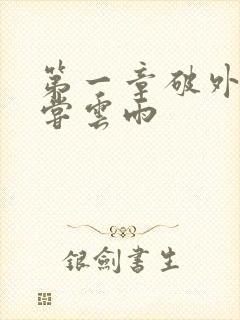 第一章破外
尝雲雨
银劍書生